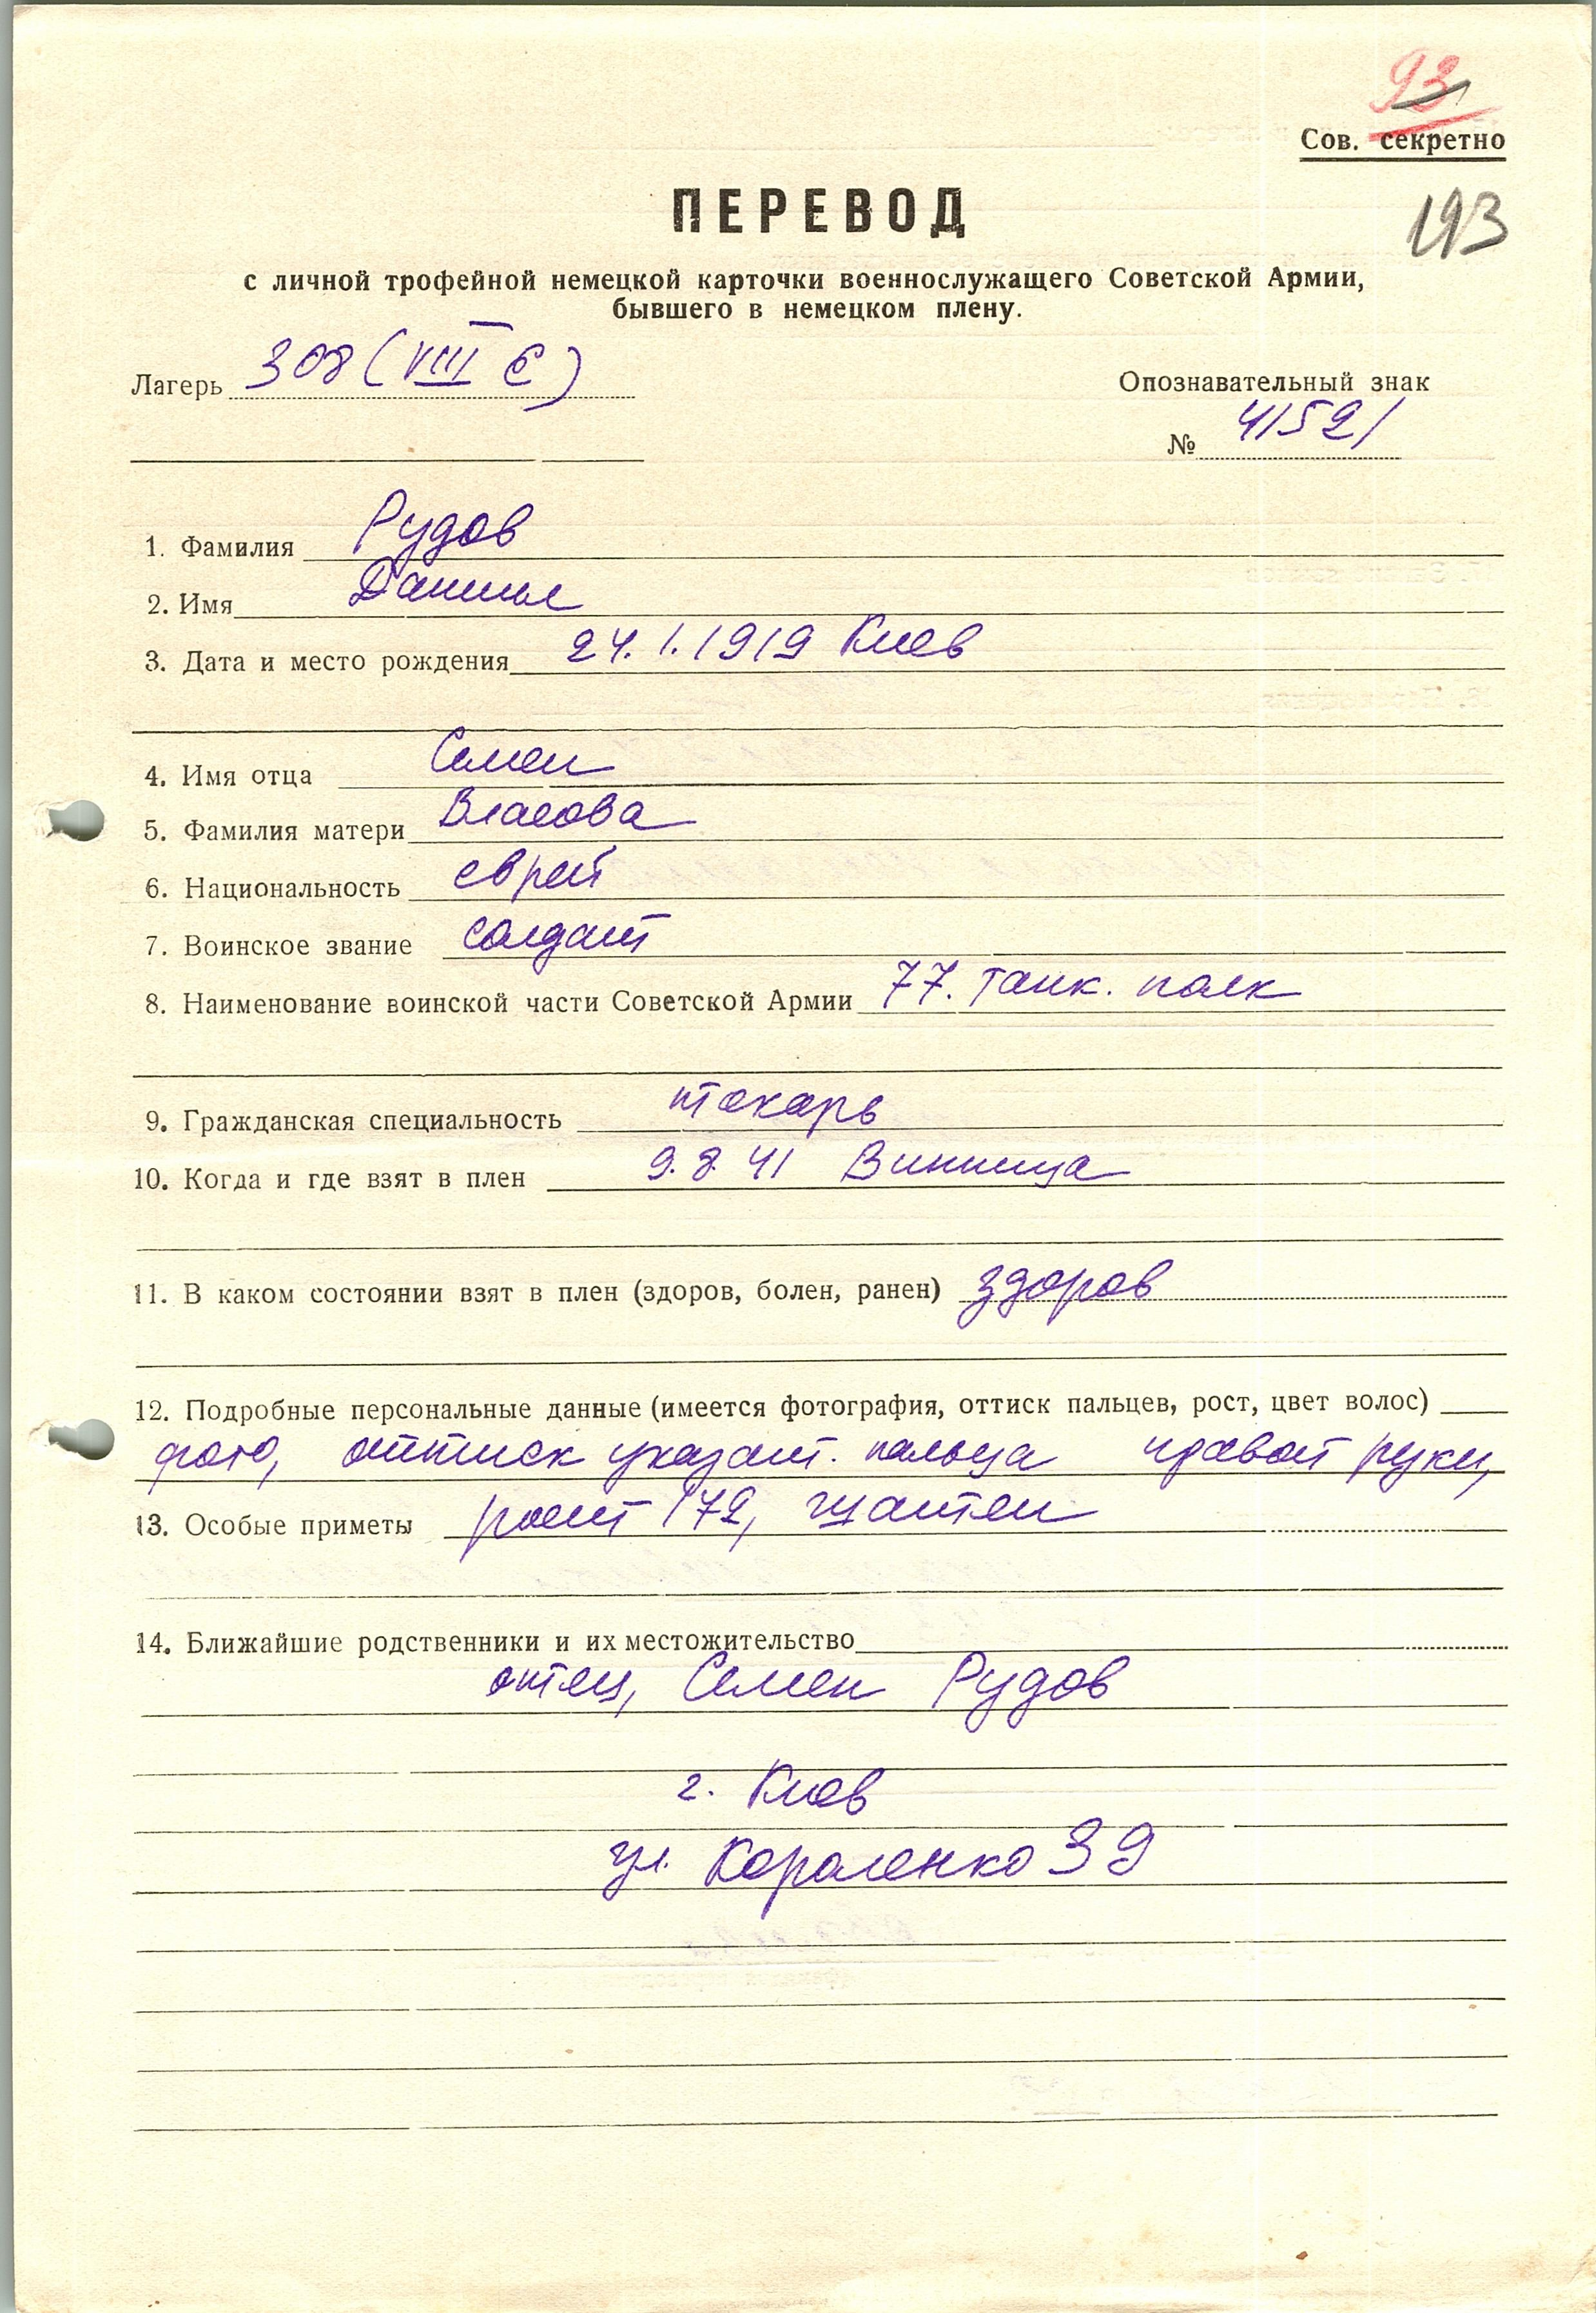 93
Сов. секретно
193
ПЕРЕВОД
с личной трофейной немецкой карточки военнослужащего Советской Армии,
бывшего в немецком плену.
Лагерь 308 (VIII E)
Опознавательный знак
№ 41521
1. Фамилия Рудов
2. Имя Даниил
3. Дата и место рождения 24.1.1919 Киев
4. Имя отца Семен
5. Фамилия матери Власова
6. Национальность еврей
7. Воинское звание солдат
8. Наименование воинской части Советской Армии 77. танк. полк
9. Гражданская специальность токарь
10. Когда и где взят в плен 9.8.41 Винница
11. В каком состоянии взят в плен (здоров, болен, ранен) здоров
12. Подробные персональные данные (имеется фотография, оттиск пальцев, рост, цвет волос)
фото, оттиск указат. пальца правой руки,
13. Особые приметы рост 172, шатен
14. Ближайшие родственники и их местожительство
отец, Семен Рудов
г. Киев
ул. Короленко 39